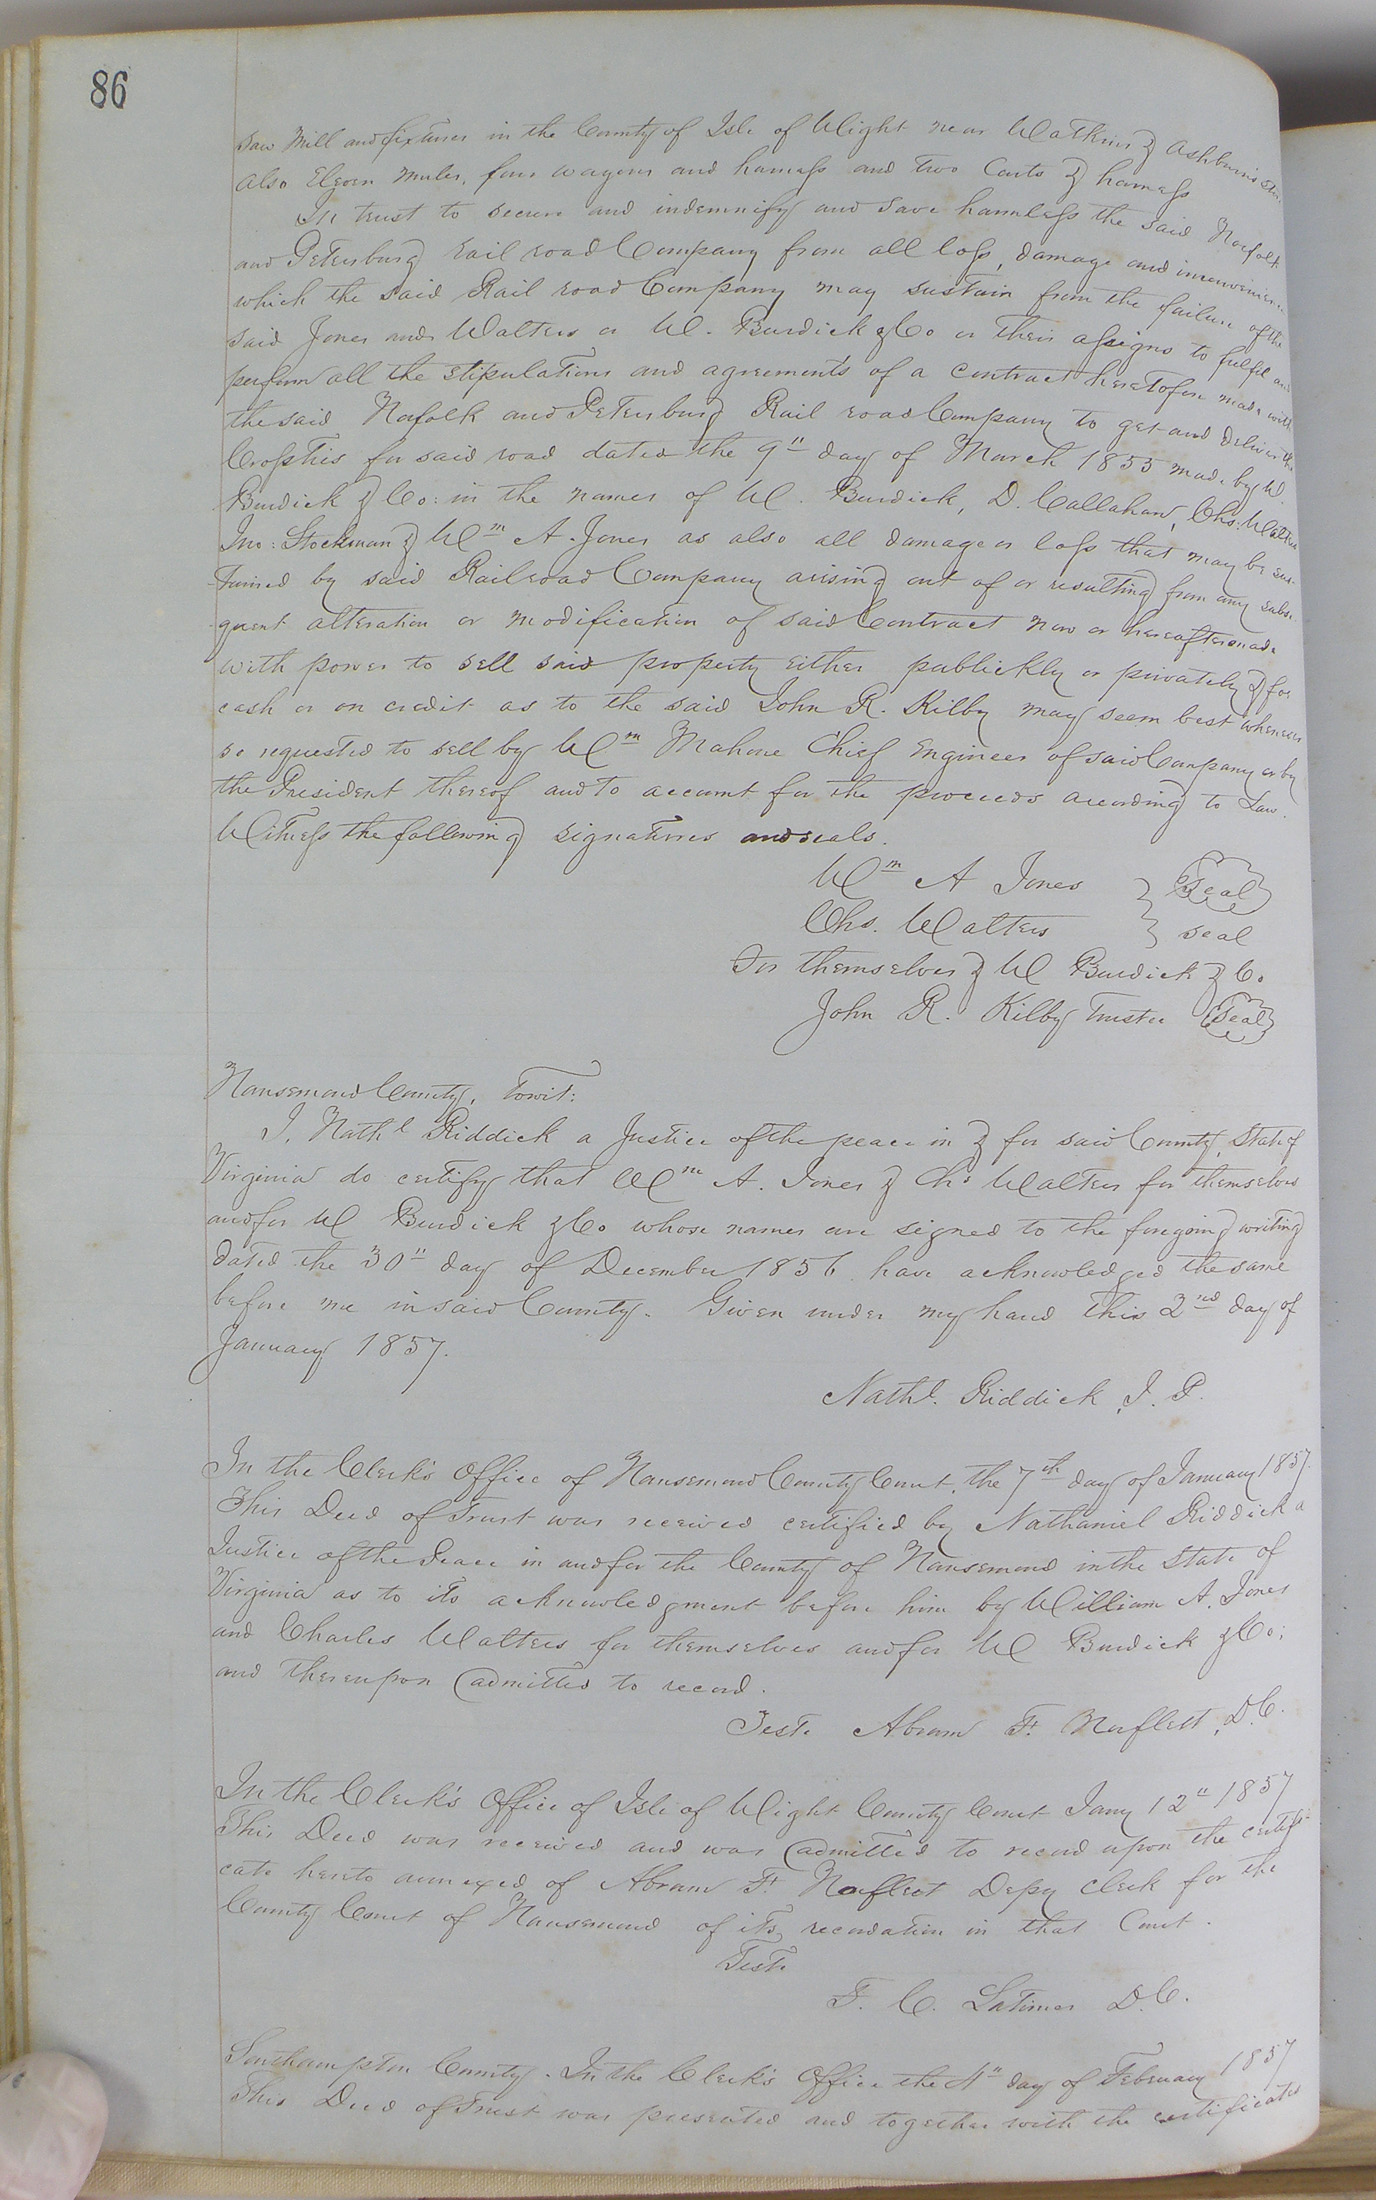 86
Saw Mill and fixtures in the County of Isle of Wight near Watkins & Ashburn's
also Eleven mules, four wagons and harness and two Carts & harness
In trust to secure and indemnify and save harmless the said Norfolk
and Petersburg rail road Company from all loss, damage and inconvenience
which the said Rail road Company may sustain from the failure of the
said Jones and Walters or W. Burdick & Co or their assigns to fulfil and
perform all the stipulations and agreements of a contract heretofore made with
the said Norfolk and Petersburg Rail road Company to get and deliver the
Crossties for said road dated the 9" day of March 1855 made by W.
Burdick & Co: in the names of W. Burdick, D. Callahan, Chs: Walters
Jno: Stockman & Wm A. Jones as also all damage or loss that may be sus-
-tained by said Railroad Company arising out of or resulting from any subse-
-quent alteration or modification of said Contract now or hereafter made
with power to sell said property either publickly or privately & for
cash or on credit as to the said John R. Kilby may seem best whenever
so requested to sell by Wm Mahone Chief Engineer of said Company or by
the President thereof and to account for the proceeds according to Law.
Witness the following signatures and seals.
Wm A Jones } Seal
Chs. Walters } seal
For themselves & W Burdick & Co
John R. Kilby Trustee Seal
Nansemond County, Towit:
I, Nathl Riddick a Justice of the peace in & for said County, State of
Virginia do certify that Wm A. Jones & Chs Walters for themselves
and for W Burdick & Co whose names are signed to the foregoing writing
dated the 30" day of December 1856 have acknowledged the same
before me in said County. Given under my hand this 2nd day of
January 1857.
Nathl. Riddick, J. P.
In the Clerk's Office of Nansemond County Court, the 7th day of January 1857.
This Deed of Trust was received certified by Nathaniel Riddick a
Justice of the Peace in and for the County of Nansemond in the State of
Virginia as to its acknowledgment before him by William A. Jones
and Charles Walters for themselves and for W Burdick & Co;
and thereupon admitted to record.
Teste Abram F. Norfleet, D.C.
In the Clerk's Office of Isle of Wight County Court Jany 12" 1857
This Deed was received and was admitted to record upon the certifi-
cate hereto annexed of Abram F. Norfleet Depy Clerk for the
County Court of Nansemond of its recordation in that Court.
Teste
F. C. Latimer D.C.
Southampton County. In the Clerk's Office the 4" day of February 1857
This Deed of Trust was presented and together with the certificates